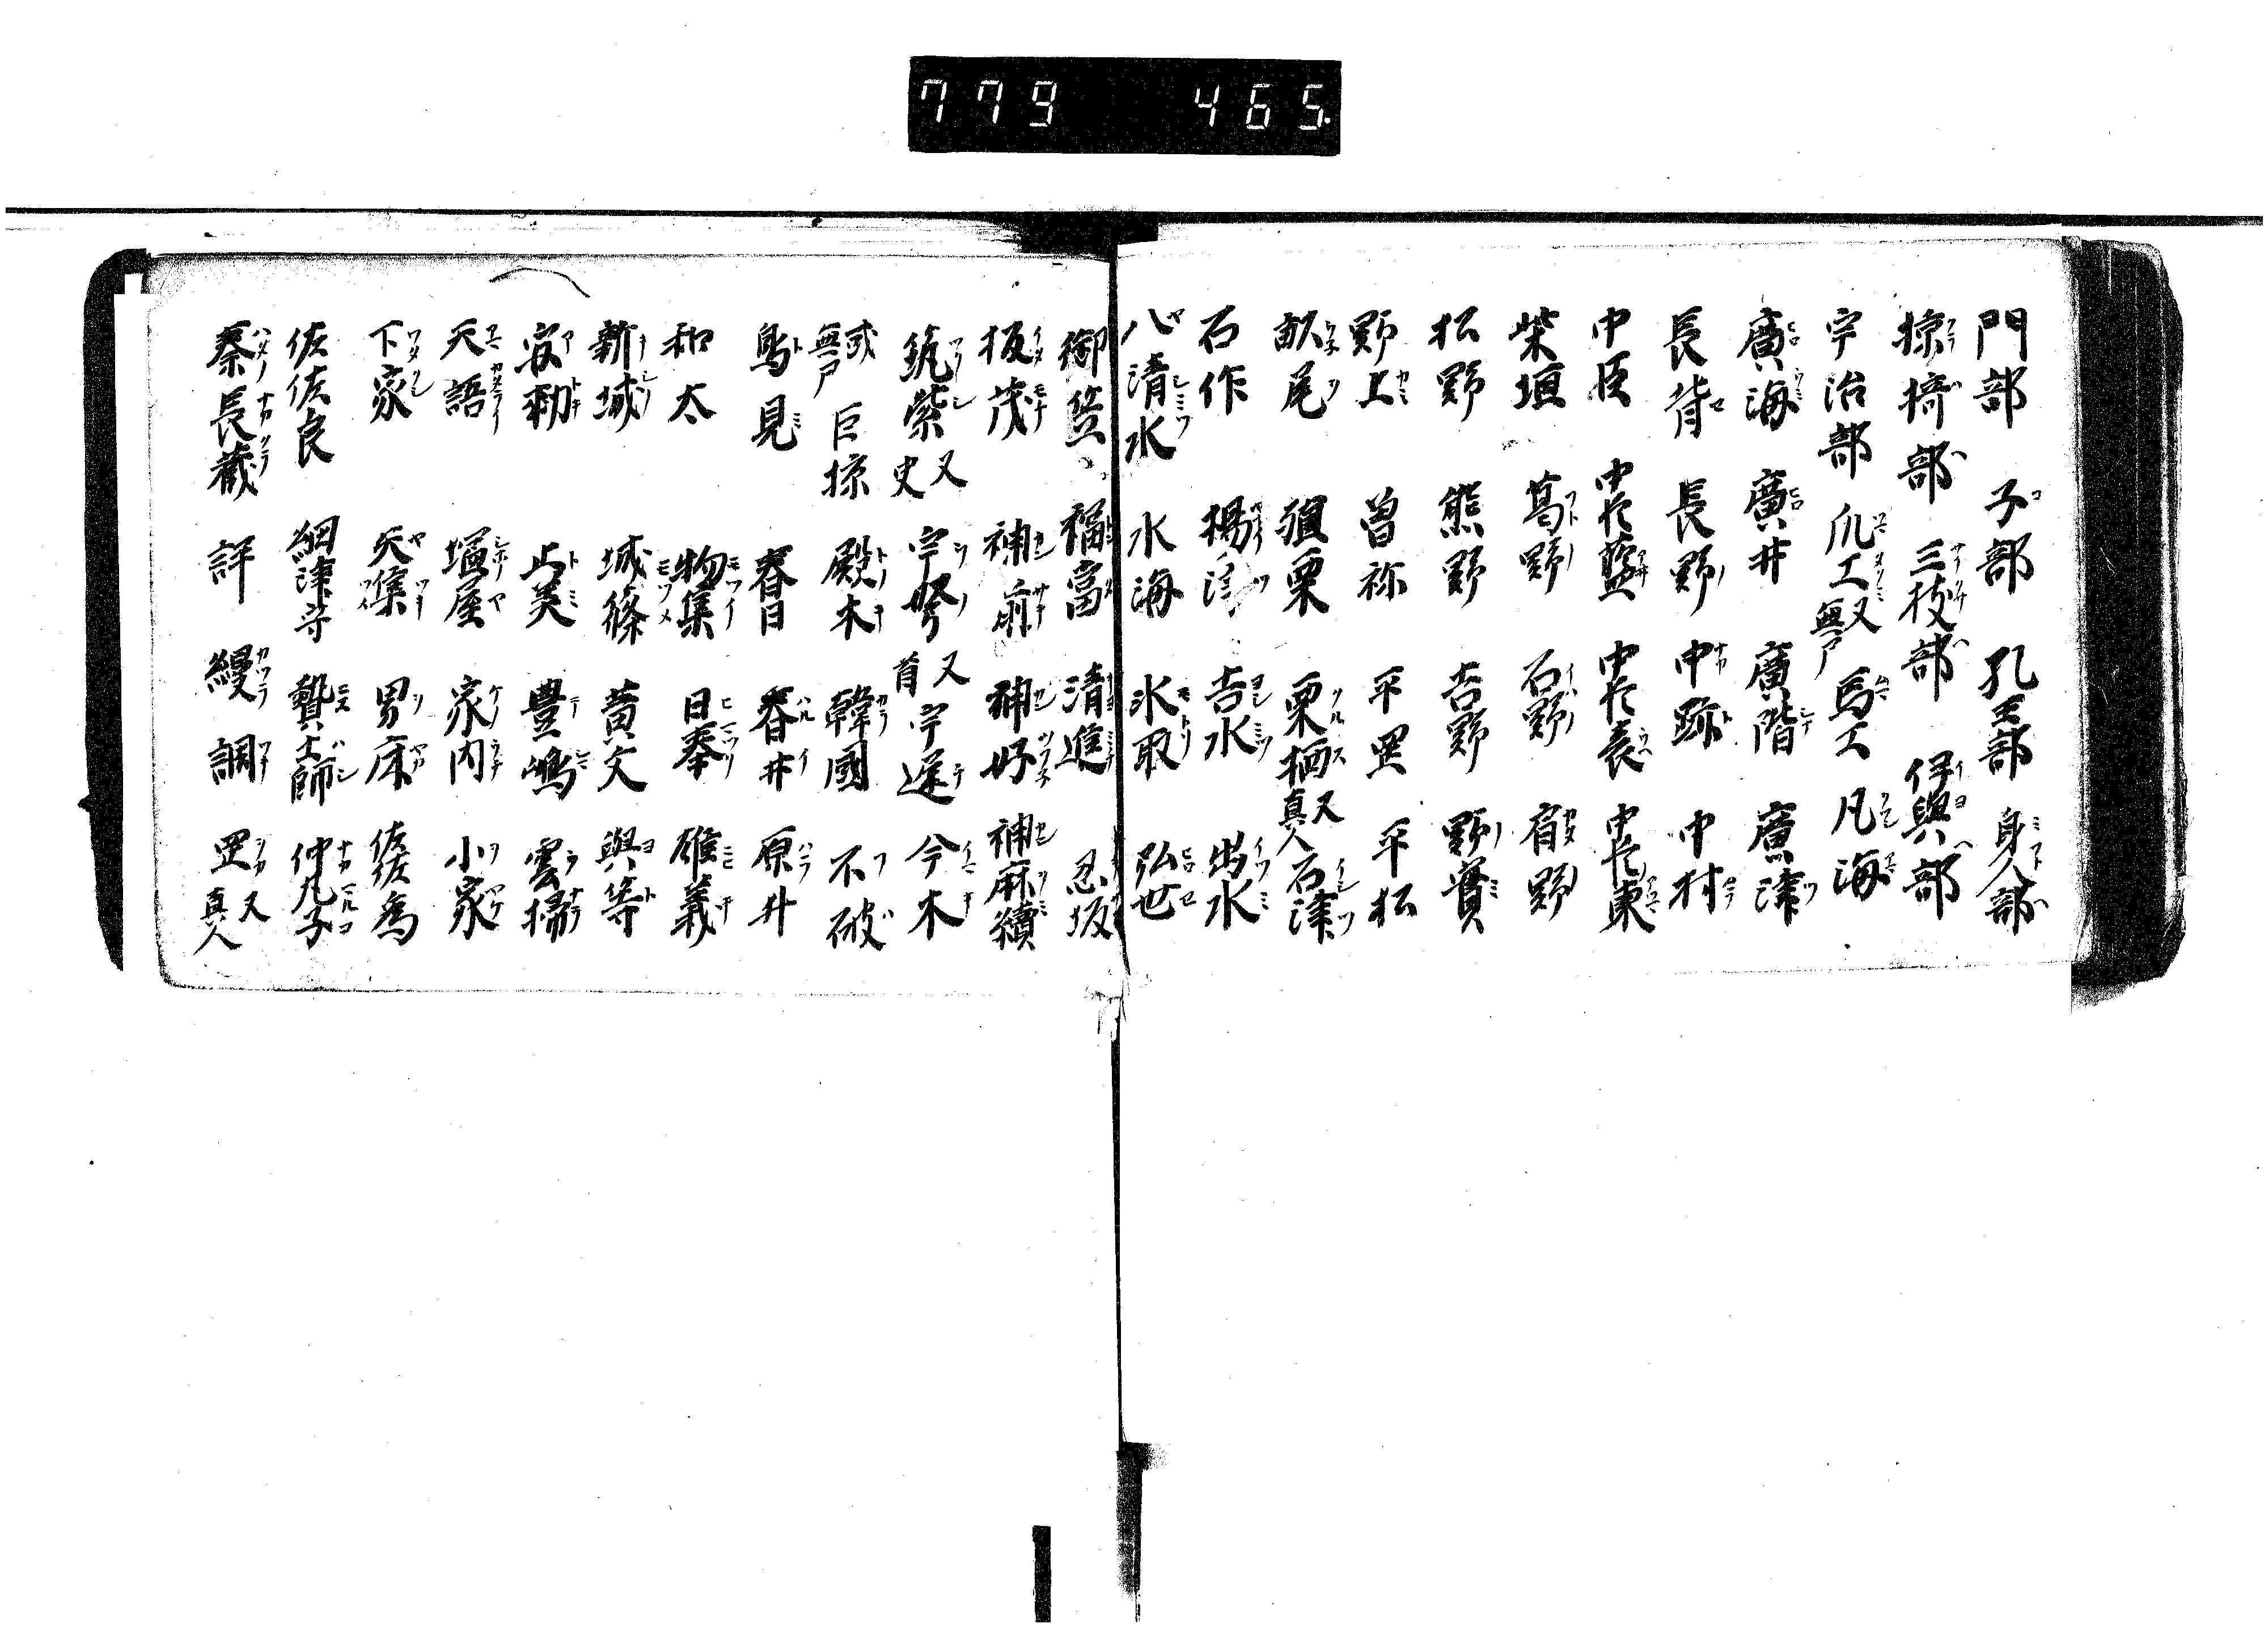 779 465.
門部 子部 孔王部 身人部
掠椅部 三枝部 伊與部
宇治部 爪工又無戸 馬工 凡海
廣海 廣井 廣階 廣津
長背 長野 中跡 中村
中臣 中臣藍 中臣表 中臣東
柴垣 葛野 石野 宿野
松野 熊野 吉野 野實
野上 曽祢 平罡 平松
畝尾 殖栗 栗栖又真人 石津
石作 楊津 吉水 出水
八清水 水海 氷取 弘世
御笠 福富 清進 忍坂
板茂 神前 神好 神麻續
筑紫又史 宇努又首 宇遅 今木
或無戸 巨掠 殿木 韓國 不破
鳥見 春日 春井 原井
和太 物集 日奉 雄義
新城 城篠 黄文 與等
安勅 止美 豊嶋 雲掃
天語 塩屋 家内 小家
下家 矢集 男床 佐為
佐佐良 網津守 贄土師 仲丸子
秦長蔵 評 縵 調 罡又真人